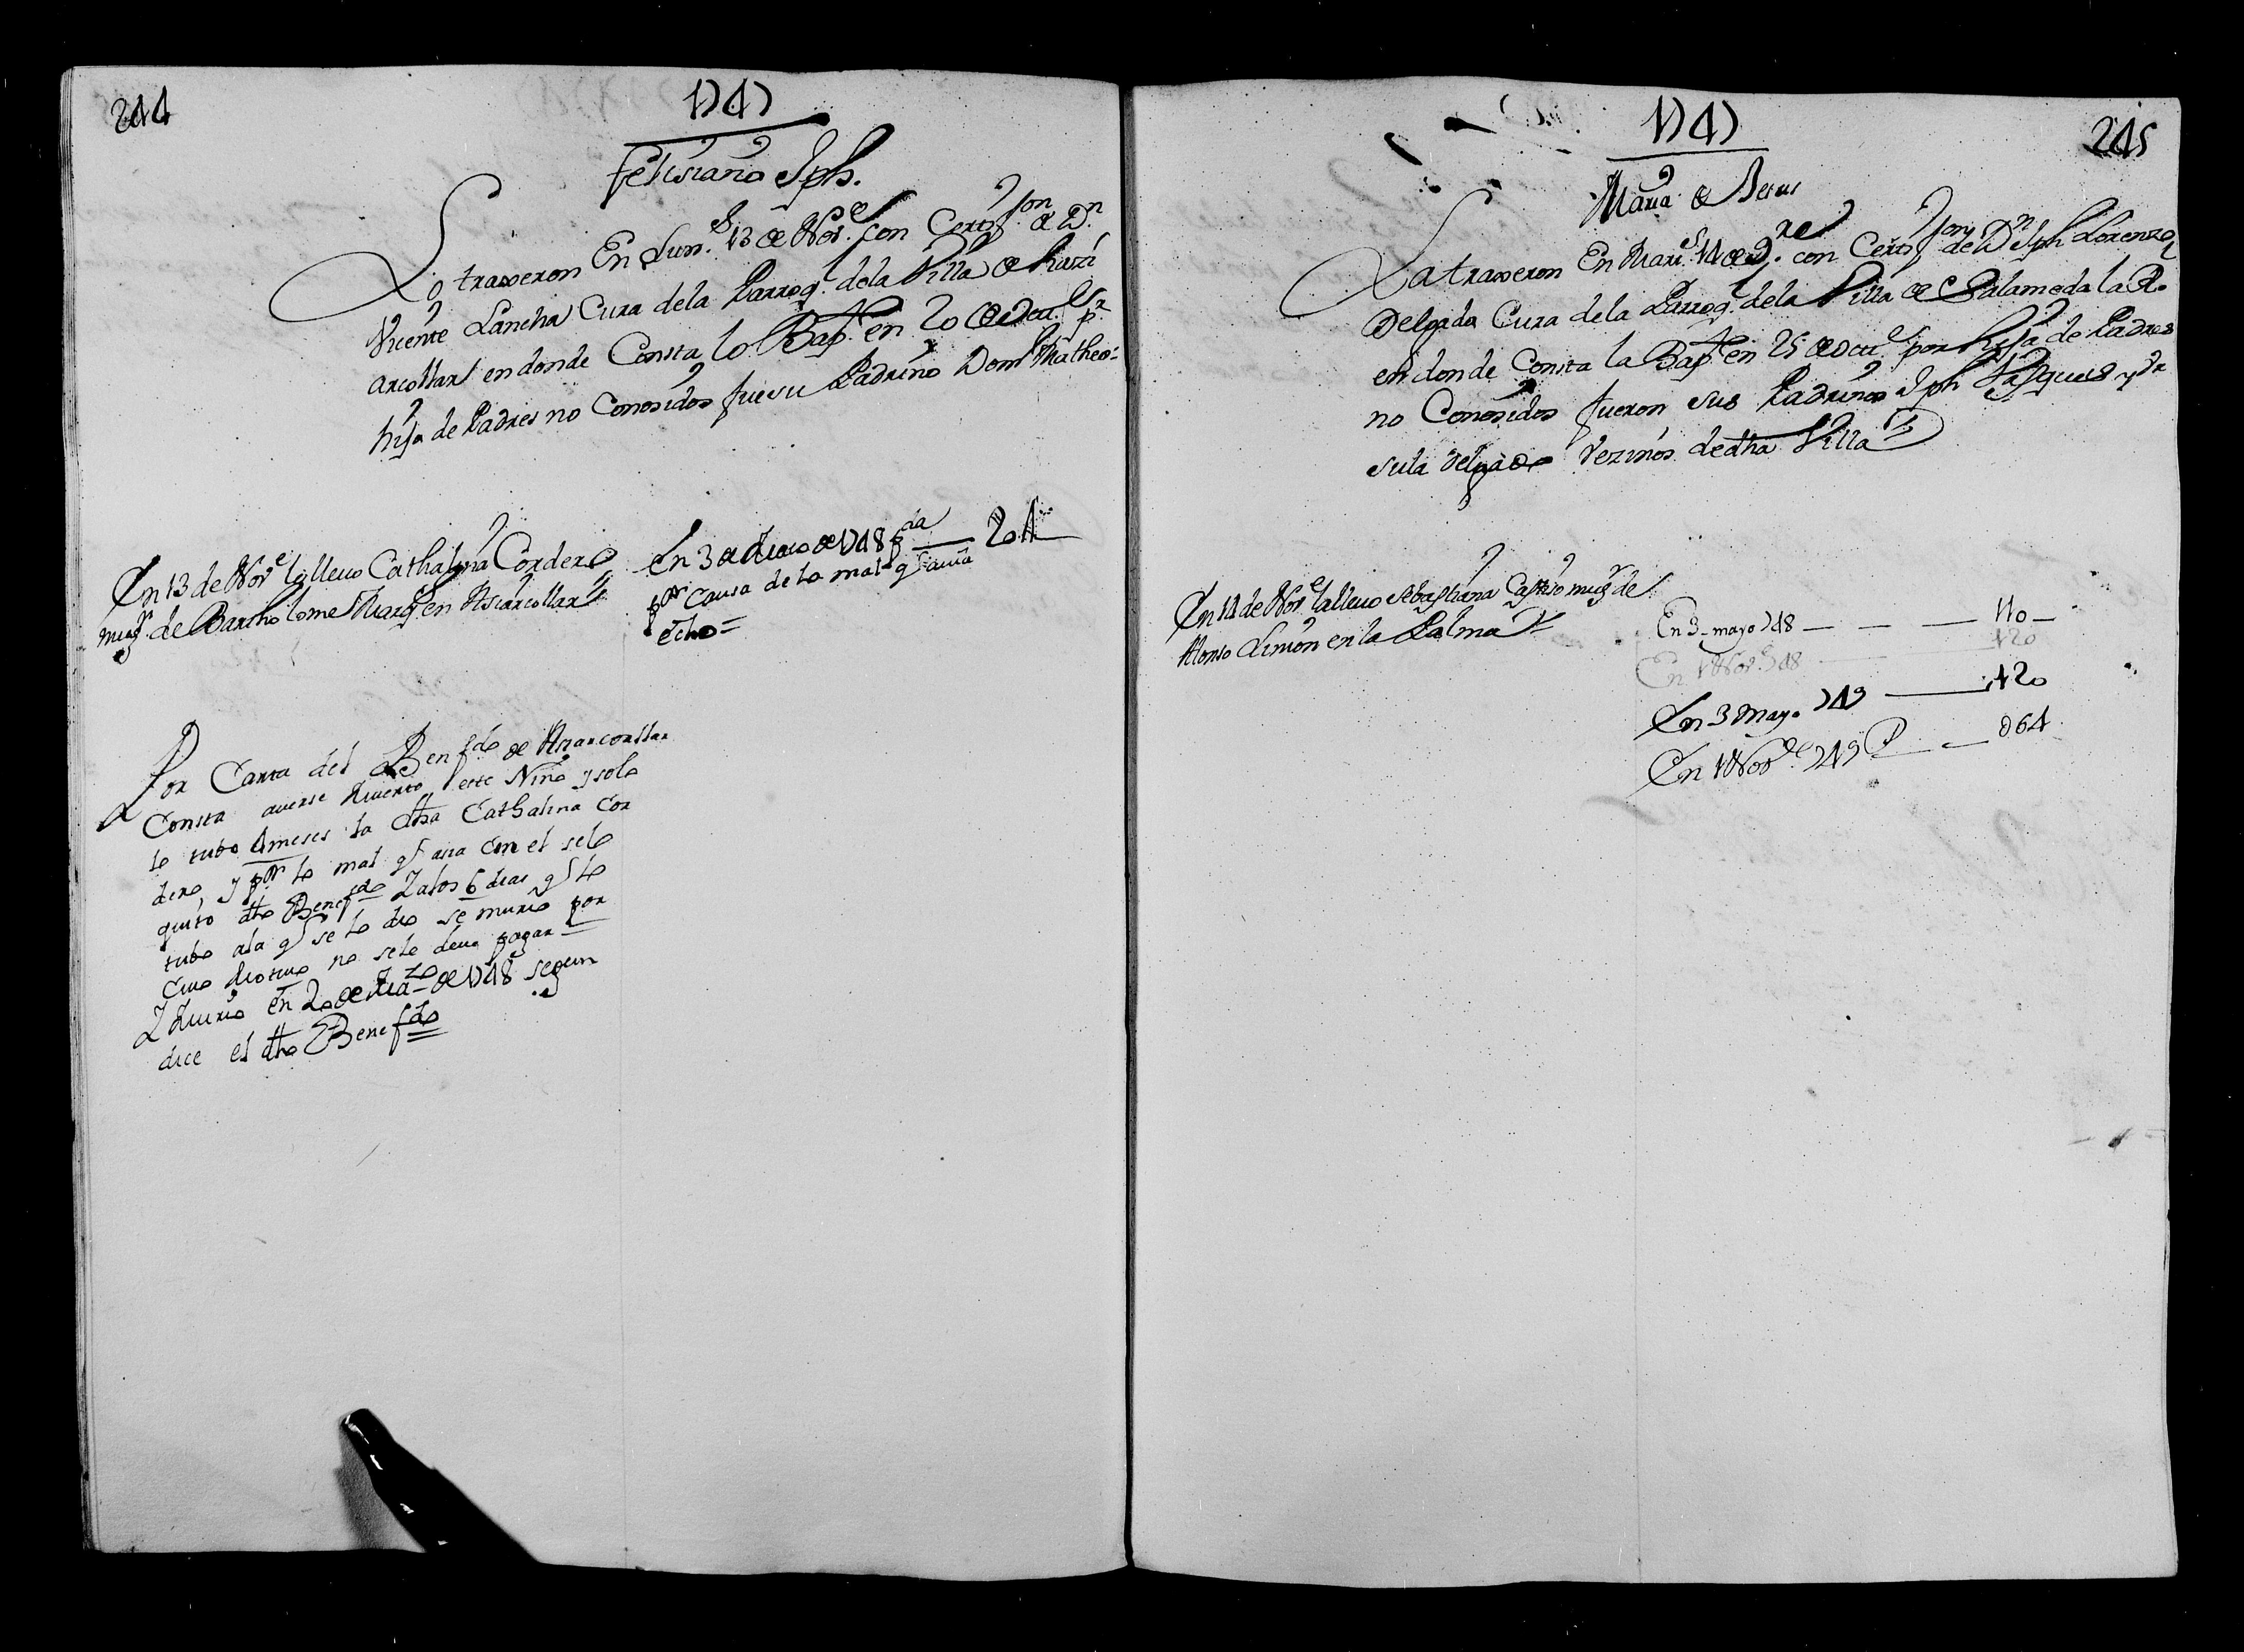 244
1747
Felisiano Jph.
Lo traxeron En Lun.s 13 de Nov.e con Certif.on de Dn.
Vicente Lancha Cura dela Parroq.l dela Villa de
arcollar en donde Consta lo Bap.te en 20 de Octu.e pr.
hijo de Padres no Conosidos fue su Padrino Dom.o Matheo=
En 13 de Nov.e la lleuo Cathalina Cordero
mug.r de Bartholome Marq.s en Asnarcollar
En 3 de Maio de 1748 p.da 204
por causa de lo mal q.e auia
echo=
Por Carta del Benef.do de Asnarcollar
Consta auerse Muerto este Niño y solo
lo tubo 4 meses la dha Cathalina Cor
dero, y por lo mal q.e asia con el selo
quito dho Benef.do Y alos 6 dias q.e lo
tubo ala q.e se lo dio se murio por
cuio motiuo no selo deue pagar=
Y Murio en 20 de Mar.zo de 1748 segun
dice el dho Benef.do
1747
245
Maria de Jesus
La traxeron En Mart.s 14 de 9.re con Certif.on de Dn. Jph Lorenzo
Delgado Cura dela Parroq.l dela Villa de Salameda la R.
en donde Consta la Bap.te en 25 de Octu.e por hija de Padres
no Conosidos fueron sus Padrinos Jph Vasques y Vr
sula Delgado Vezinos de dha Villa
En 14 de Nov.e la lleuo Sebastiana Castro mug.r de
Alonso Limon en la Palma
En 3 mayo 748 — — — 110—
En 1 Nov.e 748 — 120
En 3 Mayo 749 — 120
En 1 Nov.re 749 P — 064